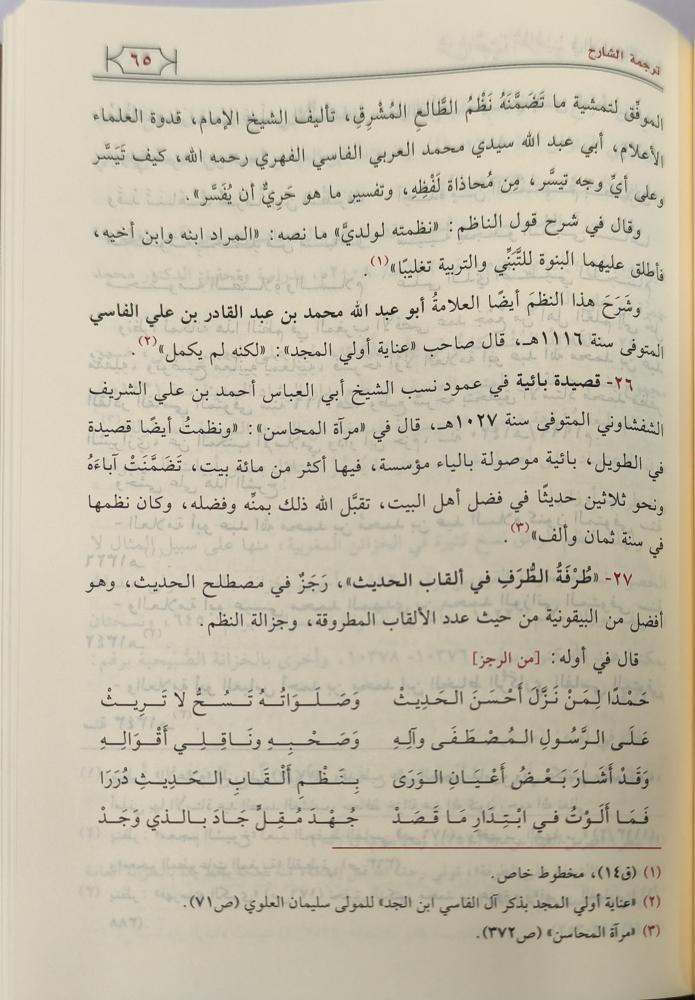 ترجمة الشارح
٦٥
الموفِّق لتمشية ما تَضَمَّنَهُ نَظْمُ الطَّالعِ المُشْرِقِ، تأليف الشيخ الإمام، قدوة العلماء
الأعلام، أبي عبد الله سيدي محمد العربي الفاسي الفهري رحمه الله، كيف تَيَسَّر
وعلى أيِّ وجه تيسَّر، مِن مُحاذاة لَفْظِهِ، وتفسير ما هو حَرِيٌّ أن يُفَسَّر».
وقال في شرح قول الناظم: «نظمته لولديَّ» ما نصه: «المراد ابنه وابن أخيه،
فأطلق عليهما البنوة للتَّبَنِّي والتربية تغليبًا»(١).
وشَرَحَ هذا النظمَ أيضًا العلامةُ أبو عبد الله محمد بن عبد القادر بن علي الفاسي
المتوفى سنة ١١١٦هـ، قال صاحب «عناية أولي المجد»: «لكنه لم يكمل»(٢).
٢٦- قصيدة بائية في عمود نسب الشيخ أبي العباس أحمد بن علي الشريف
الشفشاوني المتوفى سنة ١٠٢٧هـ، قال في «مرآة المحاسن»: «ونظمتُ أيضًا قصيدة
في الطويل، بائية موصولة بالياء مؤسسة، فيها أكثر من مائة بيت، تَضَمَّنَتْ آباءَهُ
ونحو ثلاثين حديثًا في فضل أهل البيت، تقبَّل الله ذلك بمنِّه وفضله، وكان نظمها
في سنة ثمان وألف»(٣).
٢٧- «طُرْفَةُ الطُّرَفِ في ألقاب الحديث»، رَجَزٌ في مصطلح الحديث، وهو
أفضل من البيقونية من حيث عدد الألقاب المطروقة، وجزالة النظم.
قال في أوله: [من الرجز]
حَمْدًا لِمَنْ نَزَّلَ أَحْسَنَ الحَدِيثْ وَصَلَوَاتُهُ تَسُحُّ لا تَرِيثْ
عَلَى الرَّسُولِ المُصْطَفَى وآلِهِ وَصَحْبِهِ ونَاقِلِي أَقْوَالِهِ
وَقَدْ أَشَارَ بَعْضُ أَعْيَانِ الوَرَى بِنَظْمِ أَلْقَابِ الحَدِيثِ دُرَرَا
فَمَا أَلَوْتُ في ابْتِدَارِ مَا قَصَدْ جُهْدَ مُقِلٍّ جَادَ بالذي وَجَدْ
(١) (ق١٤)، مخطوط خاص.
(٢) «عناية أولي المجد بذكر آل الفاسي ابن الجد» للمولى سليمان العلوي (ص٧١).
(٣) «مرآة المحاسن» (ص٣٧٢).